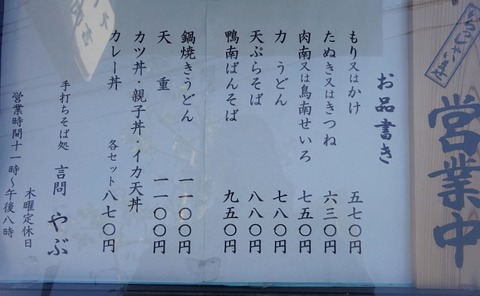 営業中
お品書き
もり又はかけ 五七〇円
たぬき又はきつね 六三〇円
肉南又は鳥南せいろ 七五〇円
力うどん 七八〇円
天ぷらそば 八八〇円
鴨南ばんそば 九五〇円
鍋焼きうどん 一一〇〇円
天重 一一〇〇円
カツ丼・親子丼・イカ天丼
カレー丼 各セット 八七〇円
手打ちそば処 言問 やぶ
木曜定休日
営業時間十一時〜午後八時